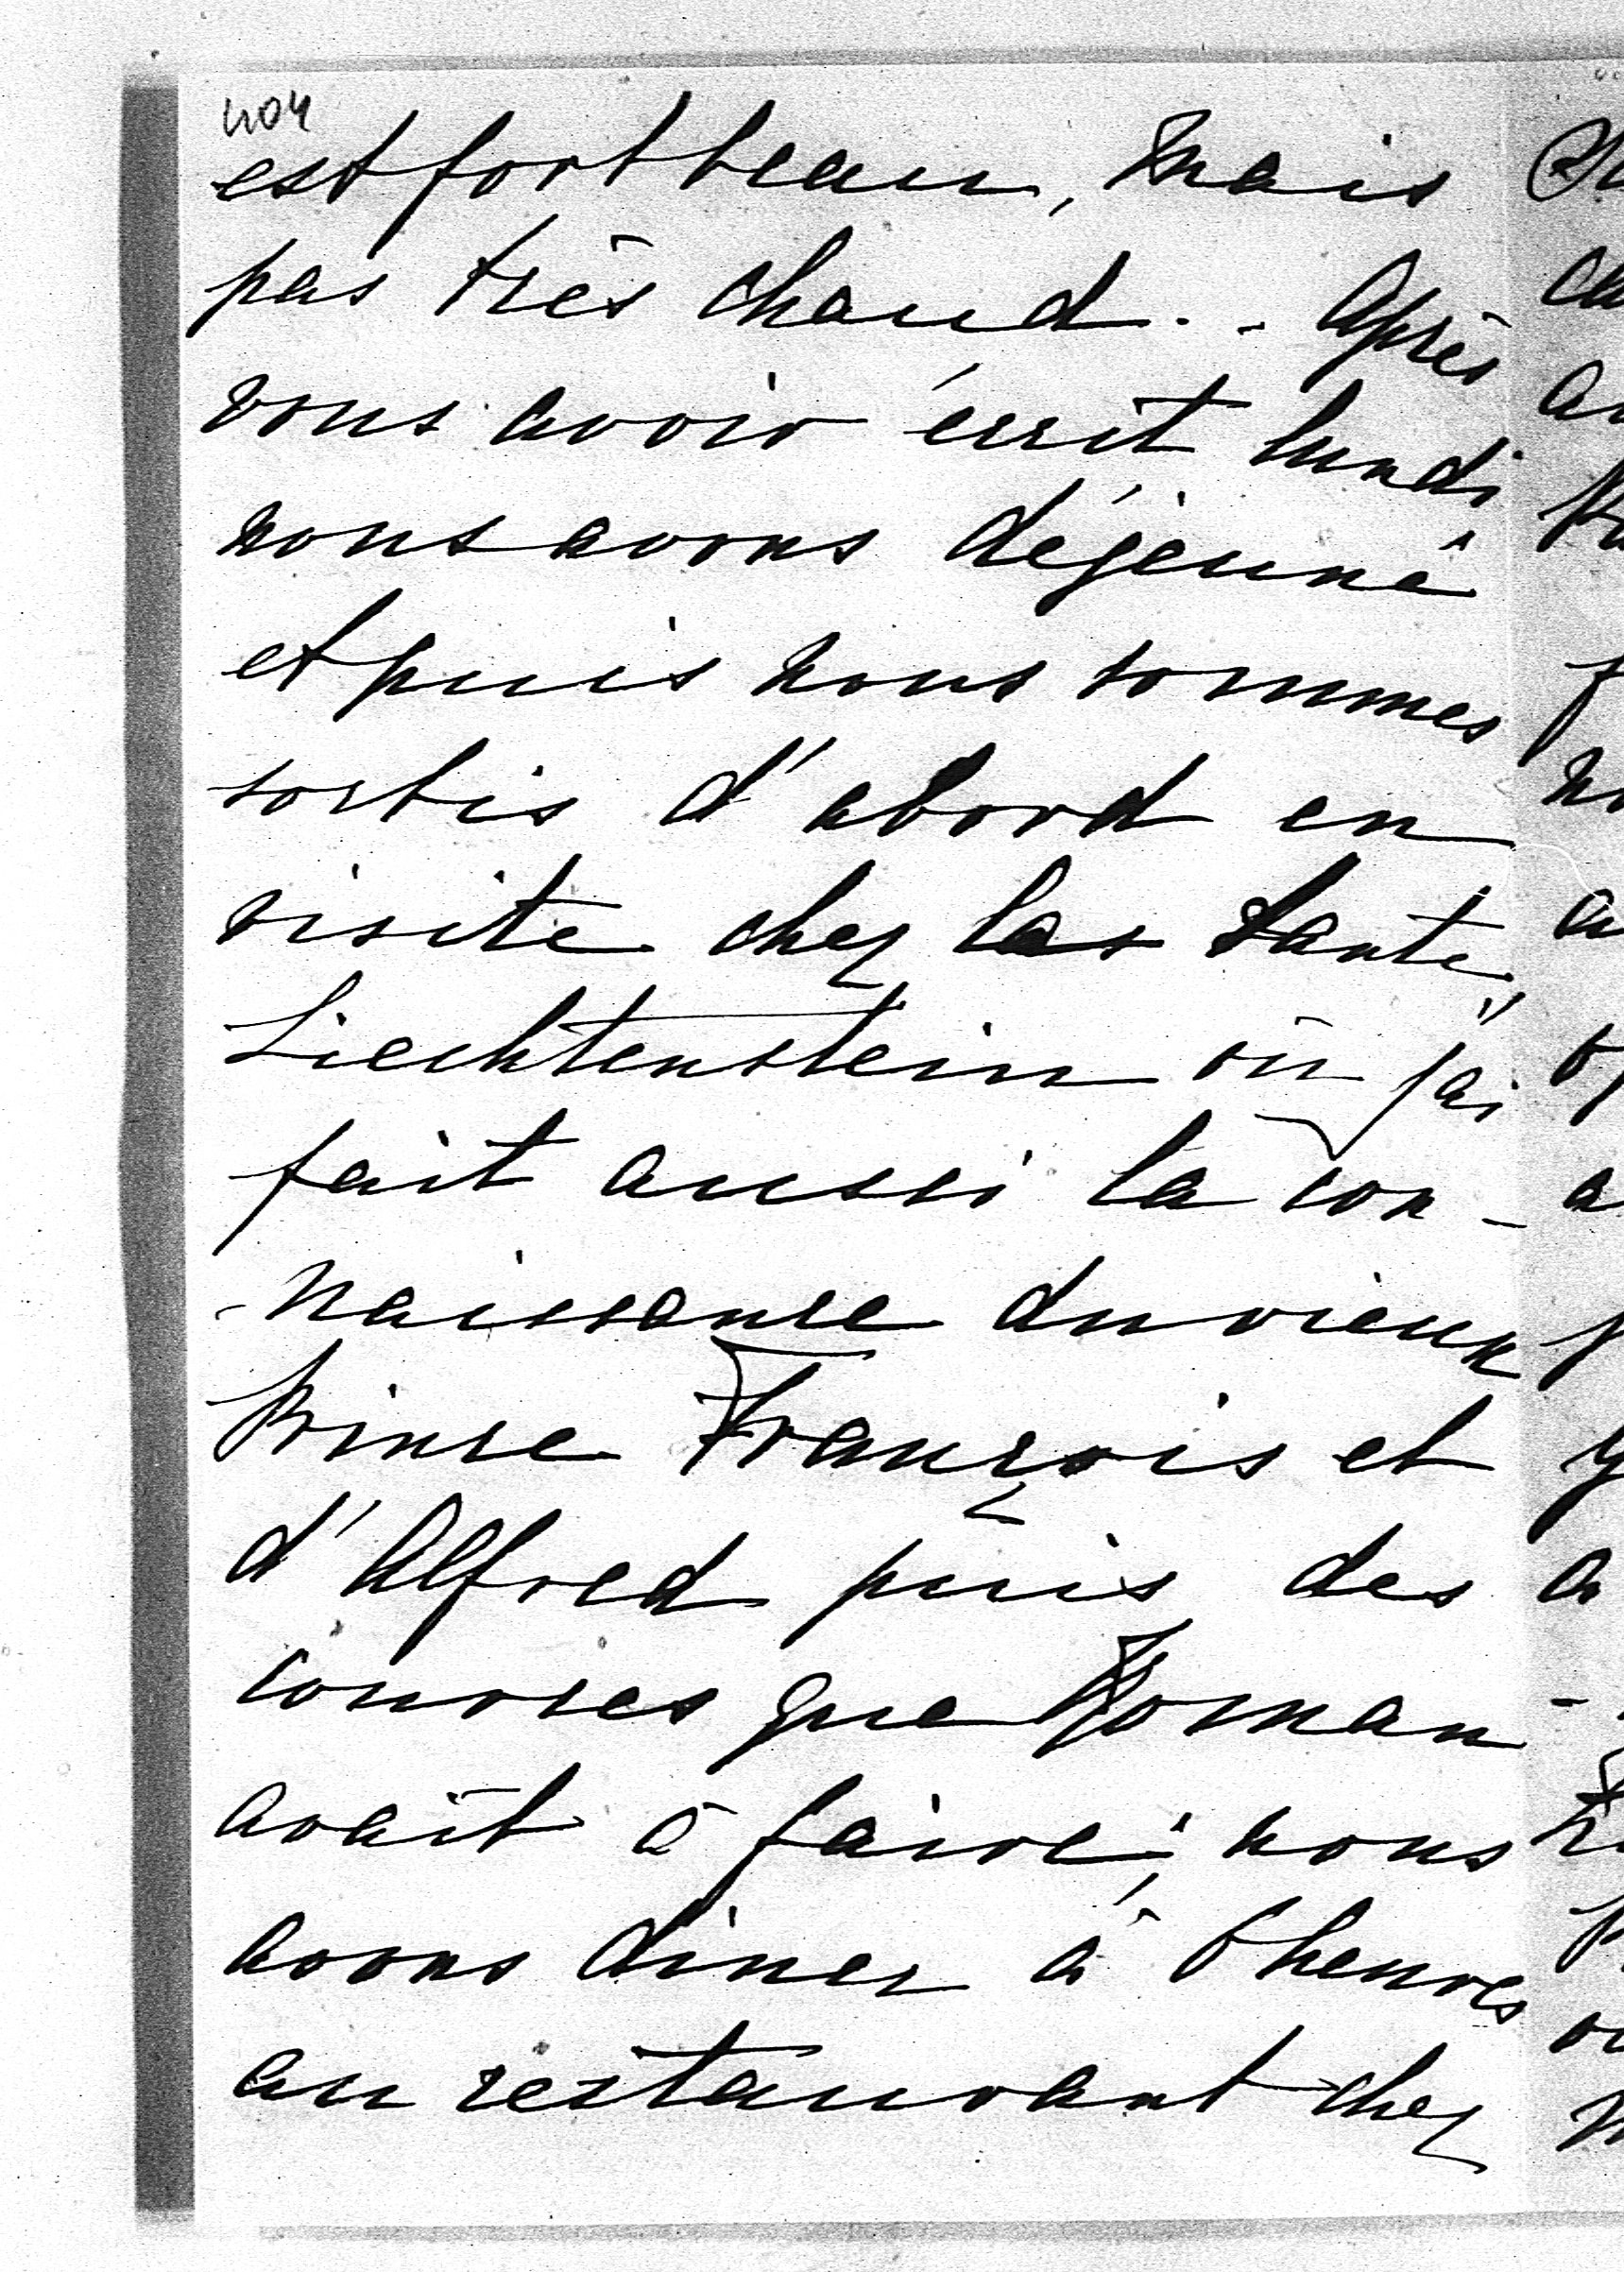 404
est fort beau, mais
pas très chaud. - Après
vous avoir écrit lundi
nous avons déjeuné
et puis nous sommes
sortis d'abord en
visite chez les tante
Liechtenstein où j'ai
fait aussi la con-
-naissance du vieux
Prince François et
d'Alfred puis des
courses que Roman
avait à faire; nous
avons diner à 6 heures
au restaurant chez